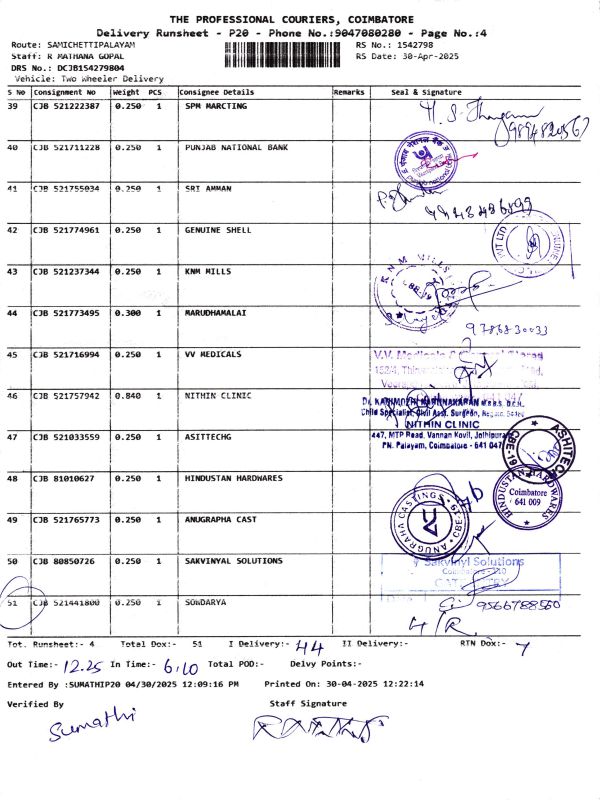 THE PROFESSIONAL COURIERS, COIMBATORE
Delivery Runsheet - P20 - Phone No.:9047080280 - Page No.:4
Route: SAMICHETTIPALAYAM RS No.: 1542798
Staff: R MATHANA GOPAL RS Date: 30-Apr-2025
DRS No.: DCJB154279804
Vehicle: Two Wheeler Delivery
S No Consignment No Weight PCS Consignee Details Remarks Seal & Signature
39 CJB 521222387 0.250 1 SPM MARCTING
40 CJB 521711228 0.250 1 PUNJAB NATIONAL BANK
41 CJB 521755034 0.250 1 SRI AMMAN
42 CJB 521774961 0.250 1 GENUINE SHELL
PVT LTD
43 CJB 521237344 0.250 1 KNM MILLS
KNM MILLS
44 CJB 521773495 0.300 1 MARUDHAMALAI
9786830033
45 CJB 521716994 0.250 1 VV MEDICALS
V.V. Medicals
46 CJB 521757942 0.840 1 NITHIN CLINIC
Child Specialist, Civil Asst. Surgeon,
NITHIN CLINIC
447, MTP Road, Vannan Kovil, Jothipuram
PN. Palayam, Coimbatore - 641 047
47 CJB 521033559 0.250 1 ASITTECHG
ASHITECH
CBE-19
48 CJB 81010627 0.250 1 HINDUSTAN HARDWARES
HINDUSTAN HARDWARES
Coimbatore
641 009
49 CJB 521765773 0.250 1 ANUGRAPHA CAST
ANUGRAHA CASTINGS
50 CJB 80850726 0.250 1 SAKVINYAL SOLUTIONS
Sakvinyl Solutions
51 CJB 521441800 0.250 1 SOWDARYA
9566788560
Tot. Runsheet:- 4 Total Dox:- 51 I Delivery:- 44 II Delivery:- RTN Dox:- 7
Out Time:- 12.25 In Time:- 6.10 Total POD:- Delvy Points:-
Entered By :SUMATHIP20 04/30/2025 12:09:16 PM Printed On: 30-04-2025 12:22:14
Verified By Staff Signature
Sumathi